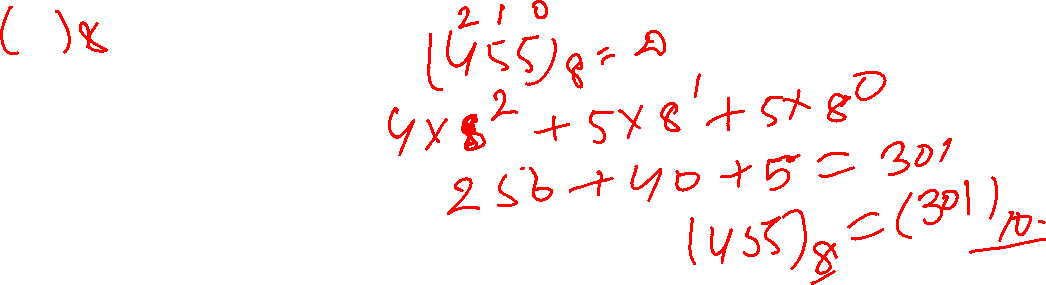 ( )8
2 1 0
(455)8 =
4×8² + 5×8¹ + 5×8⁰
256 + 40 + 5 = 301
(455)8 = (301)10.